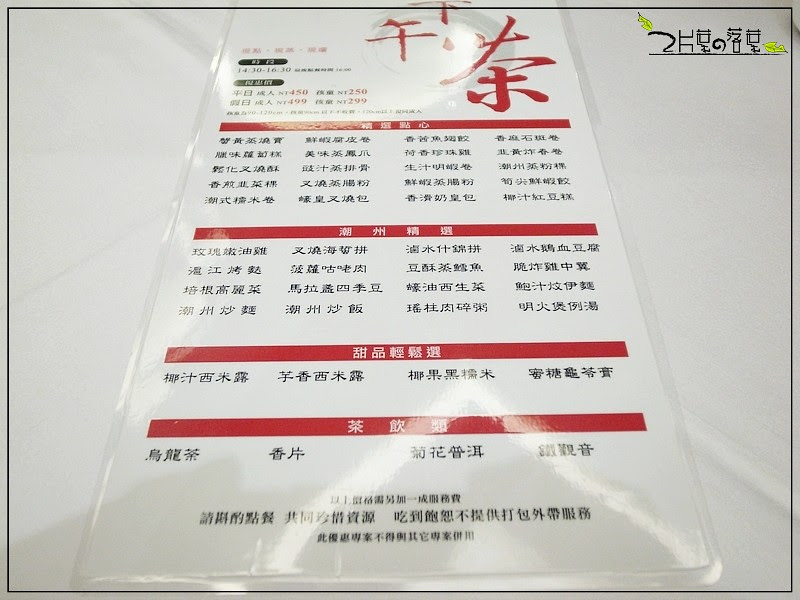 下午茶
現點、現蒸、現嚐
時段
14:30-16:30 最後點餐時間 16:00
現惠價
平日 成人 NT450 孩童 NT250
假日 成人 NT499 孩童 NT299
精選點心
蟹黃蒸燒賣 鮮蝦腐皮卷 香茜魚翅餃 香麻石斑卷
臘味蘿蔔糕 美味蒸鳳爪 荷香珍珠雞 韭黃炸春卷
鬆化叉燒酥 豉汁蒸排骨 生汁明蝦卷 潮州蒸粉粿
香煎韭菜粿 叉燒蒸腸粉 鮮蝦蒸腸粉 筍尖鮮蝦餃
潮式糯米卷 蠔皇叉燒包 香滑奶皇包 椰汁紅豆糕
潮州精選
玫瑰嫩油雞 叉燒海蜇拼 滷水什錦拼 滷水鵝血豆腐
滬江烤麩 菠蘿咕咾肉 豆酥蒸鱈魚 脆炸雞中翼
培根高麗菜 馬拉盞四季豆 蠔油西生菜 鮑汁炆伊麵
潮州炒麵 潮州炒飯 瑤柱肉碎粥 明火煲例湯
甜品輕鬆選
椰汁西米露 芋香西米露 椰果黑糯米 蜜糖龜苓膏
茶飲類
烏龍茶 香片 菊花普洱 鐵觀音
以上價格需另加一成服務費
請斟酌點餐 共同珍惜資源 吃到飽恕不提供打包外帶服務
此優惠專案不得與其它專案併用
2片葉の落葉